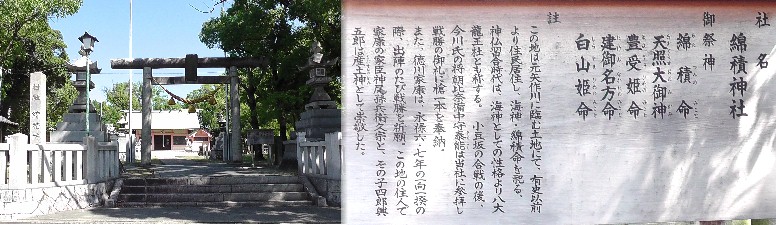 社名 綿積神社
御祭神
綿積命
天照大御神
豊受姫命
建御名方命
白山姫命
註
この地は元矢作川に臨む土地にて、有史以前
より住民居住し、海神・綿積命を祀る、
神仏習合時代は、海神としての性格より八大
龍王社とも称する。 小豆坂の合戦の後、
今川氏の将朝比奈備中守泰能は当社に参拝し
戦勝の御礼に槍一本を奉納。
また、徳川家康は、永禄六・七年の一向一揆の
際、出陣のたび戦勝を祈願、この地の住人で
家康の家臣神谷兵衛宗と、その子四郎
五郎は産土神として崇敬した。